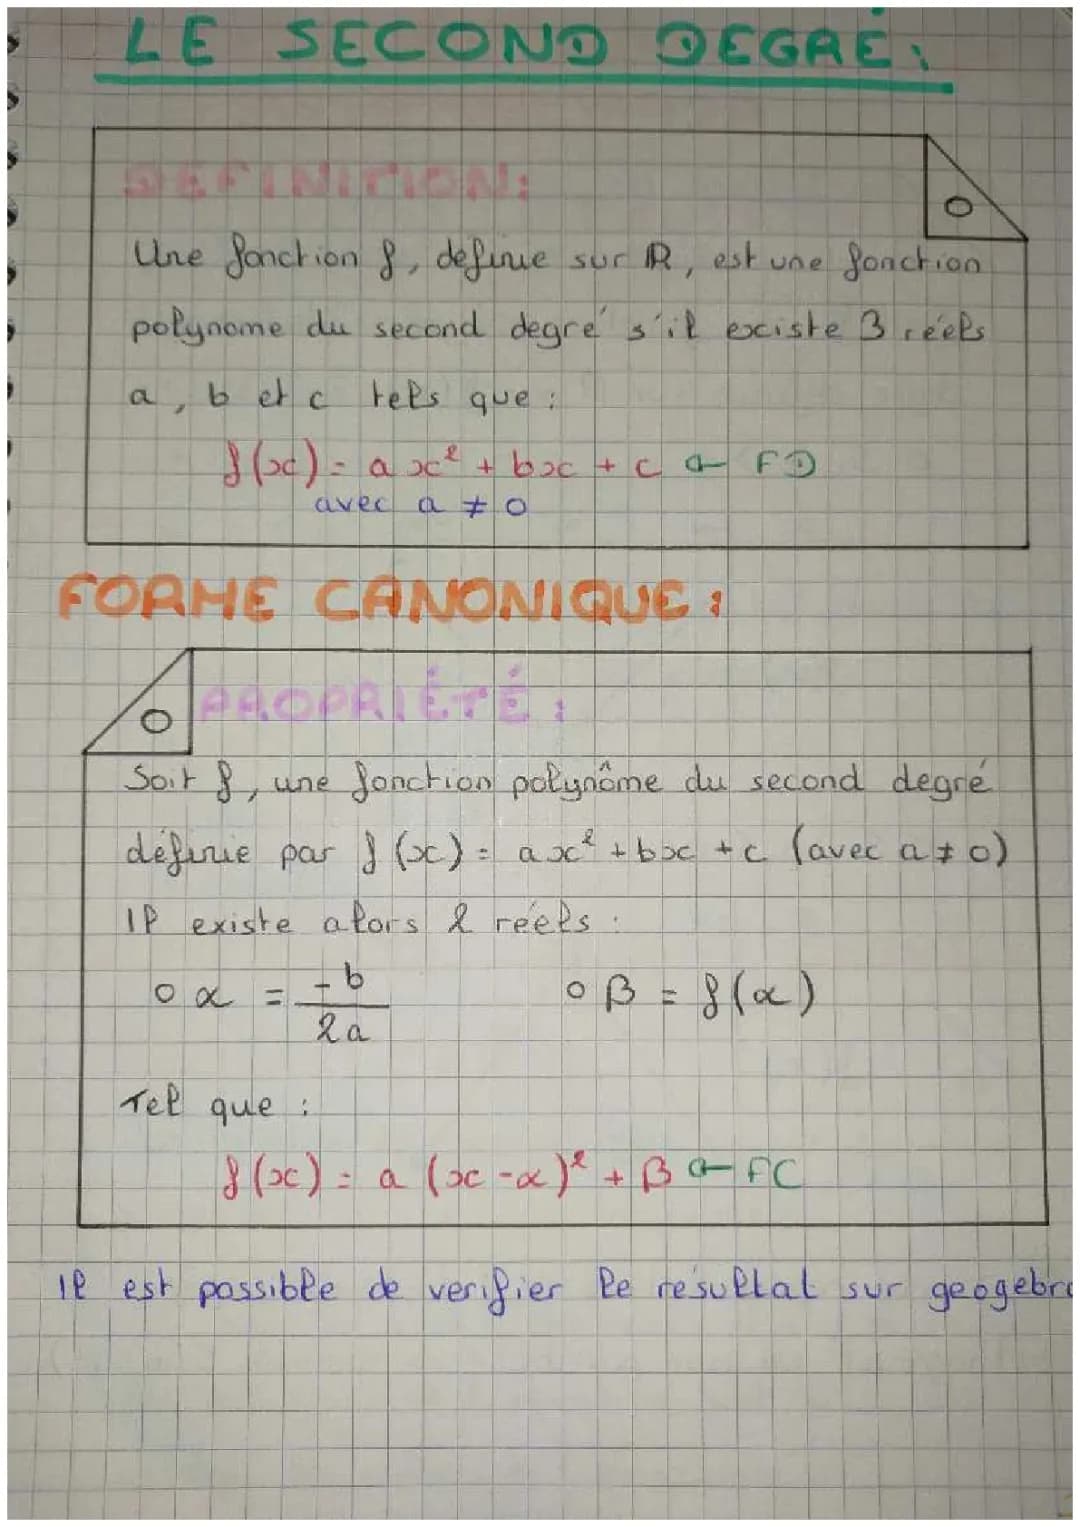 LE SECOND DEGRÉ:
DEFINITION:
Une fonction f, définie sur ℝ, est une fonction
polynome du second degré s'il existe 3 réels
a, b et c tels que :
f(x) = ax² + bx + c ← FD
avec a ≠ 0
FORME CANONIQUE :
PROPRIÉTÉ :
Soit f, une fonction polynôme du second degré
définie par f(x) = ax² + bx + c (avec a ≠ 0)
Il existe alors 2 réels :
o α = -b/2a o β = f(α)
Tel que :
f(x) = a (x - α)² + β ← FC
Il est possible de verifier le résultat sur geogebra